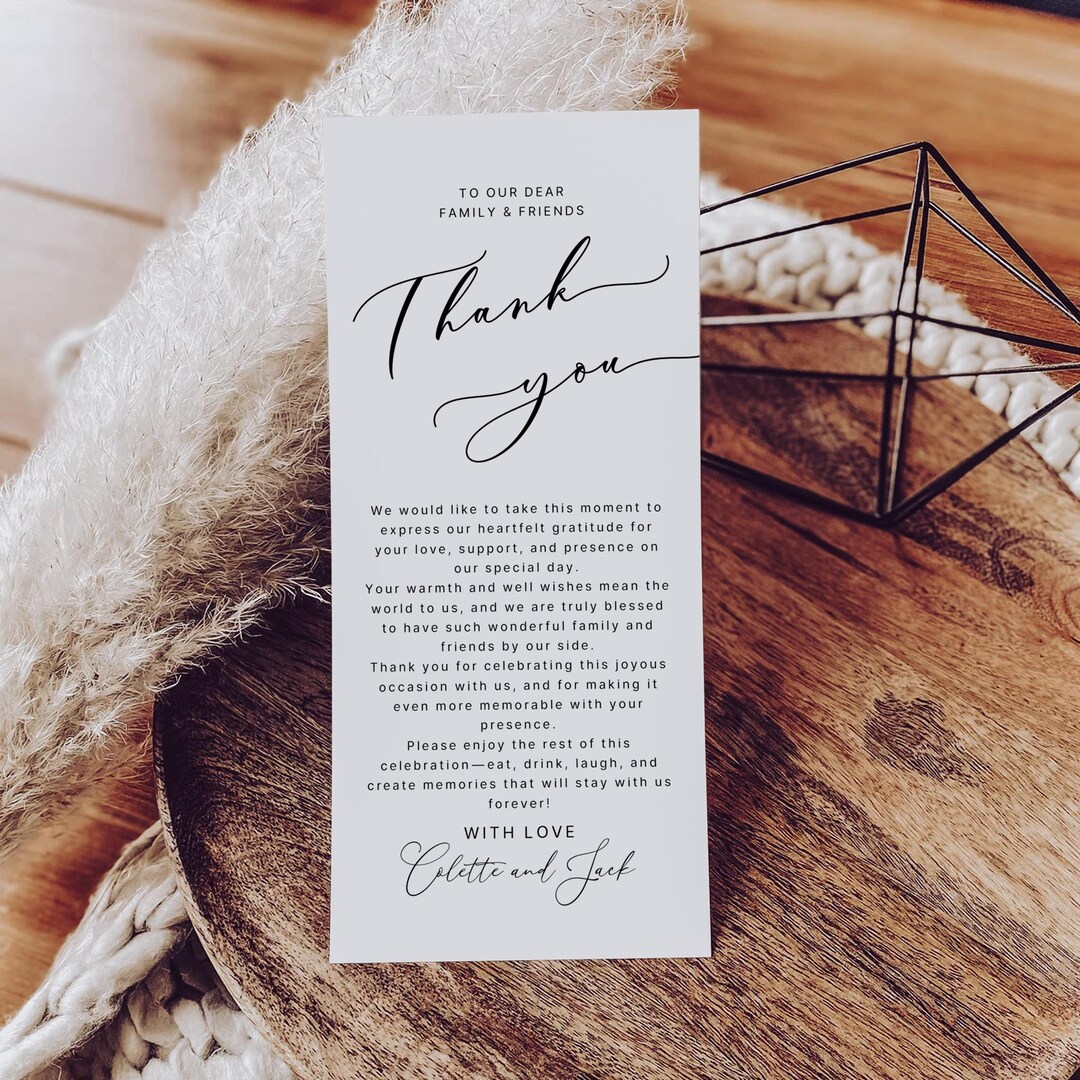 TO OUR DEAR
FAMILY & FRIENDS
Thank
you
We would like to take this moment to
express our heartfelt gratitude for
your love, support, and presence on
our special day.
Your warmth and well wishes mean the
world to us, and we are truly blessed
to have such wonderful family and
friends by our side.
Thank you for celebrating this joyous
occasion with us, and for making it
even more memorable with your
presence.
Please enjoy the rest of this
celebration—eat, drink, laugh, and
create memories that will stay with us
forever!
WITH LOVE
Colette and Jack